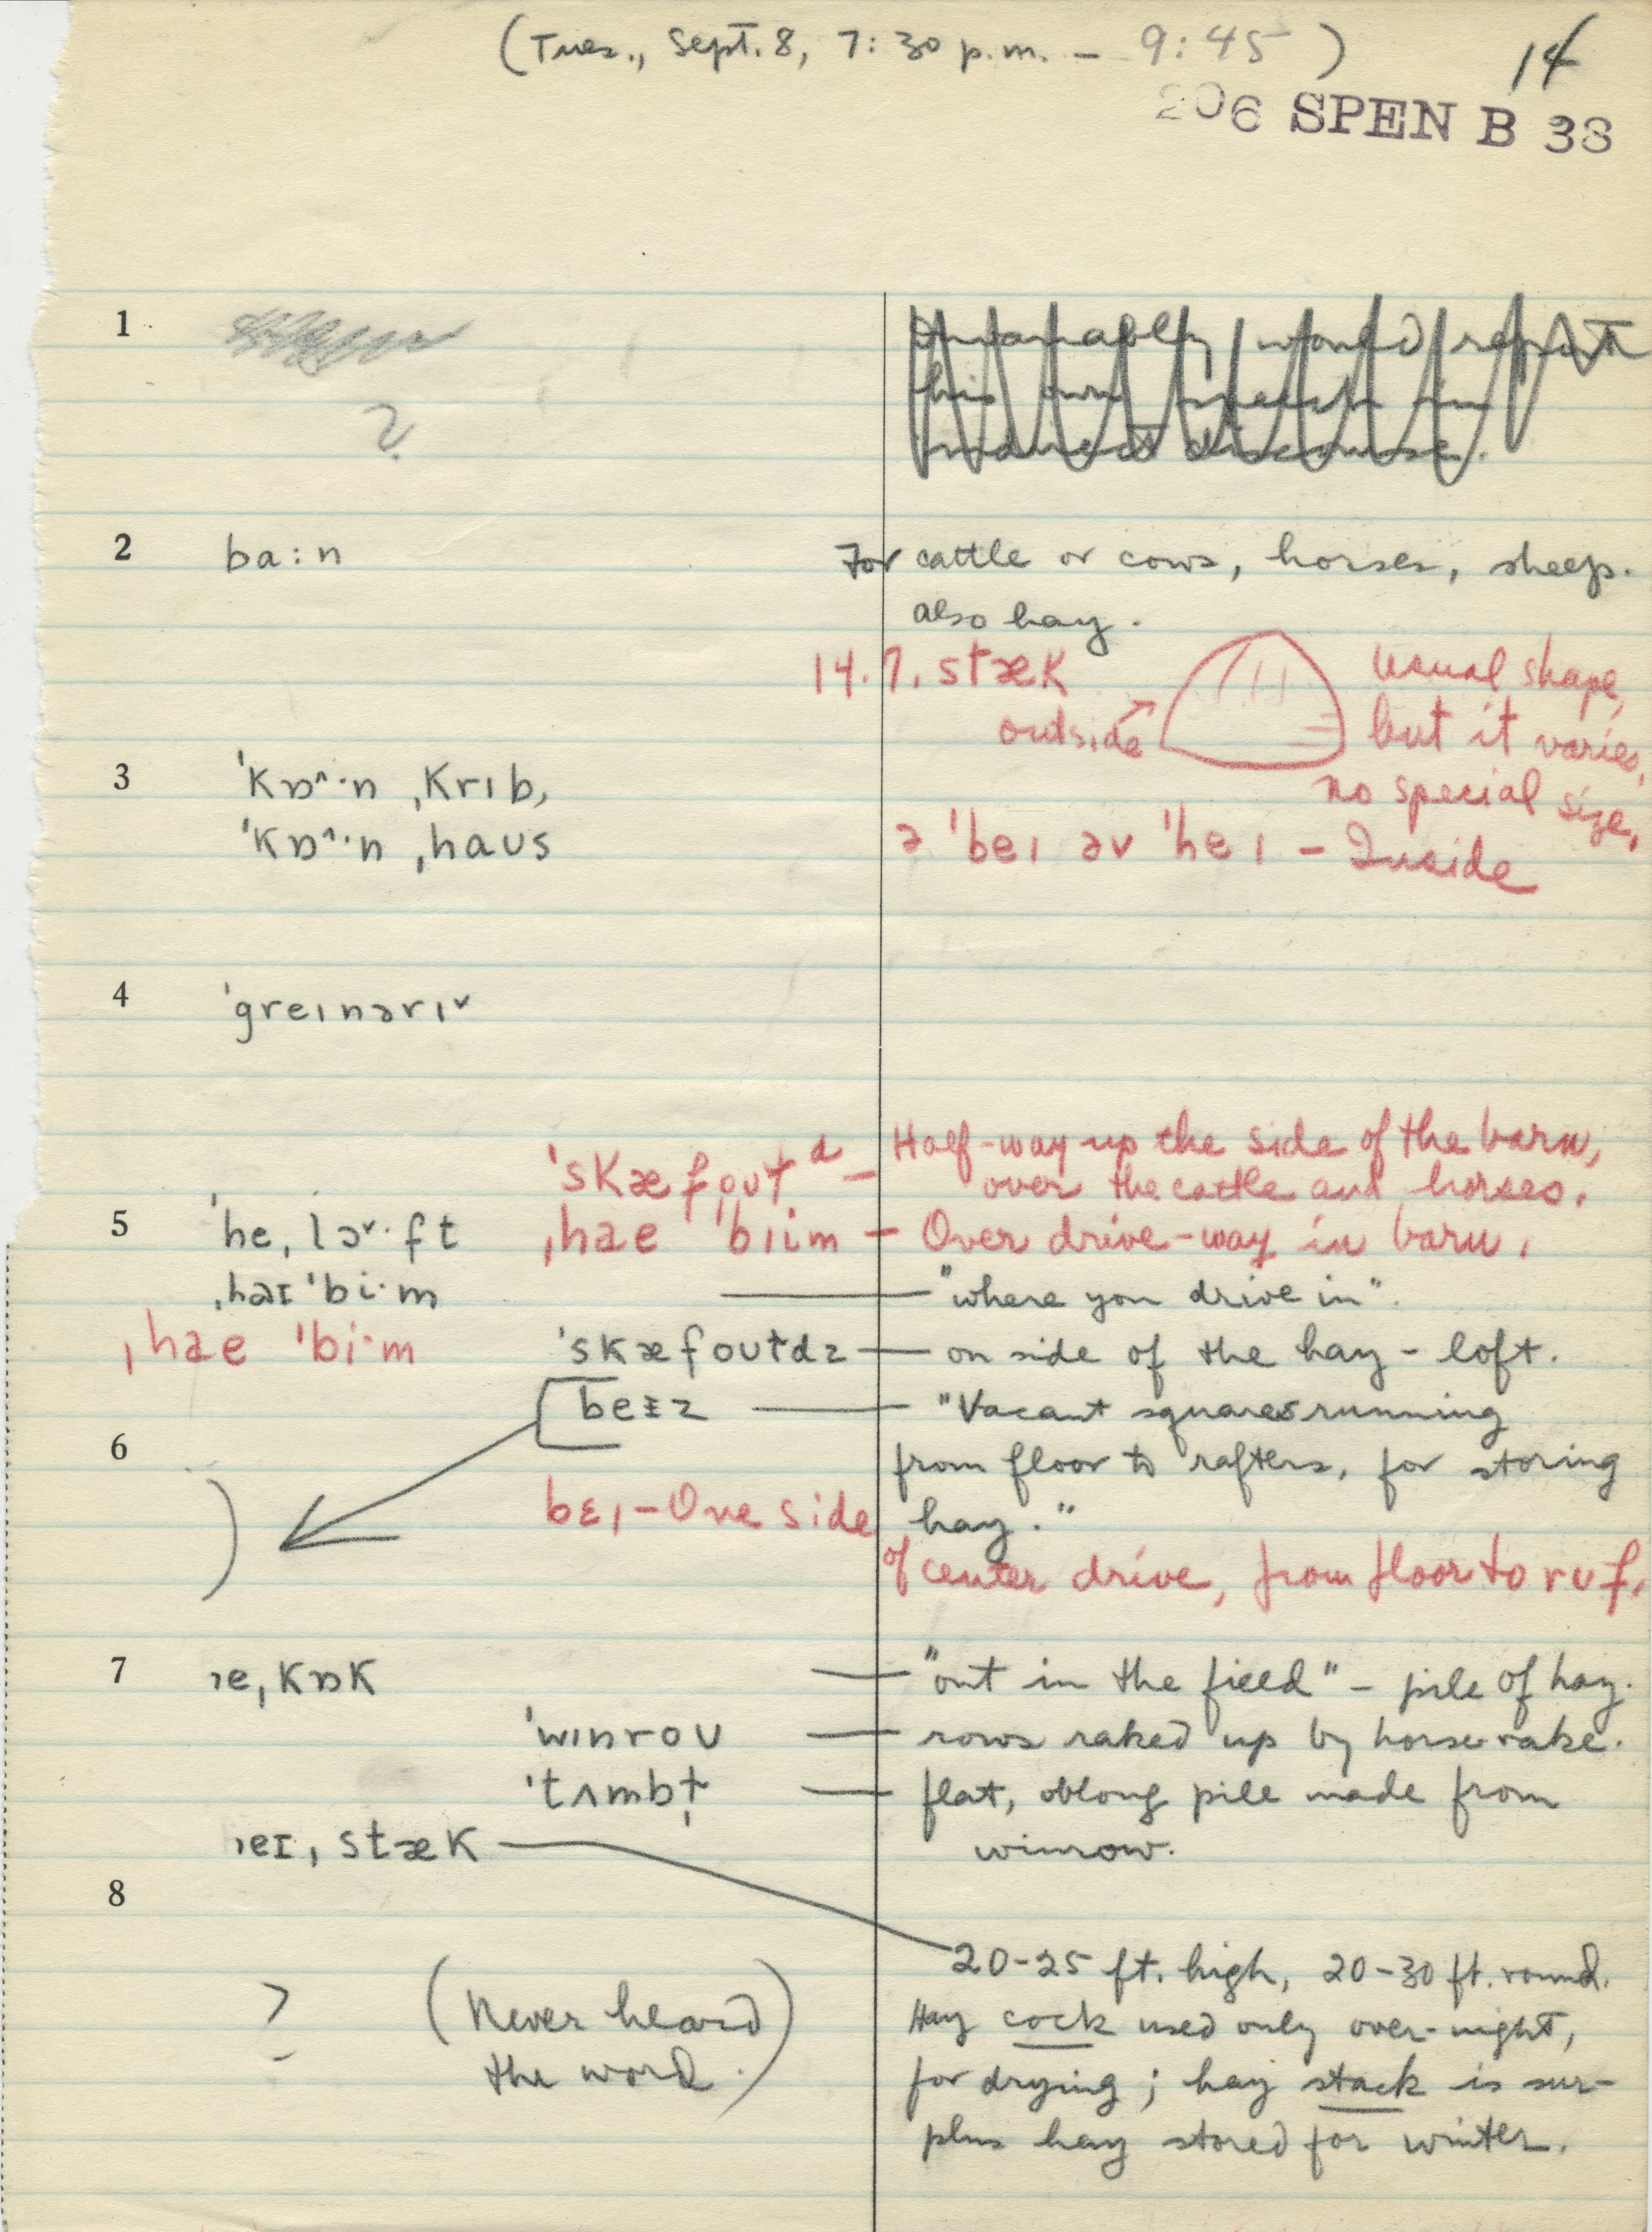 (Tues., Sept. 8, 7:30 p.m. — 9:45)
14
206 SPEN B 38
1
?
Invariably would report
his own speech in
indirect discourse.
2 ba:n For cattle or cows, horses, sheep.
also hay.
14.7. stæk
outside
usual shape,
but it varies,
no special size.
3 ˈkɒ^·n ˌkrɪb,
ˈkɒ^·n ˌhaʊs
ə ˈbeɪ əv ˈheɪ – Inside
4 ˈgreɪnərɪˇ
ˈskæfoʊɫd – Half-way up the side of the barn,
over the cattle and horses.
5 ˈhe,lɔˇ·ft ˌhəe ˈbiim – Over drive-way in barn.
ˌhəɪ ˈbi·m — "where you drive in".
ˌhəe ˈbi·m
ˈskæfoʊɫdz — on side of the hay-loft.
beɪz — "Vacant squares running
6
from floor to rafters, for storing
hay."
bɛɪ – One side
of center drive, from floor to rʊf.
7 ɪe,kɒk — "out in the field" – pile of hay.
ˈwɪnroʊ — rows raked up by horse-rake.
ˈtʌmbɫ̩ — flat, oblong pile made from
winrow.
ɪeɪ, stæk
8
20-25 ft. high, 20-30 ft. round.
? (Never heard
the word.)
Hay cock used only over-night,
for drying; hay stack is sur-
plus hay stored for winter.